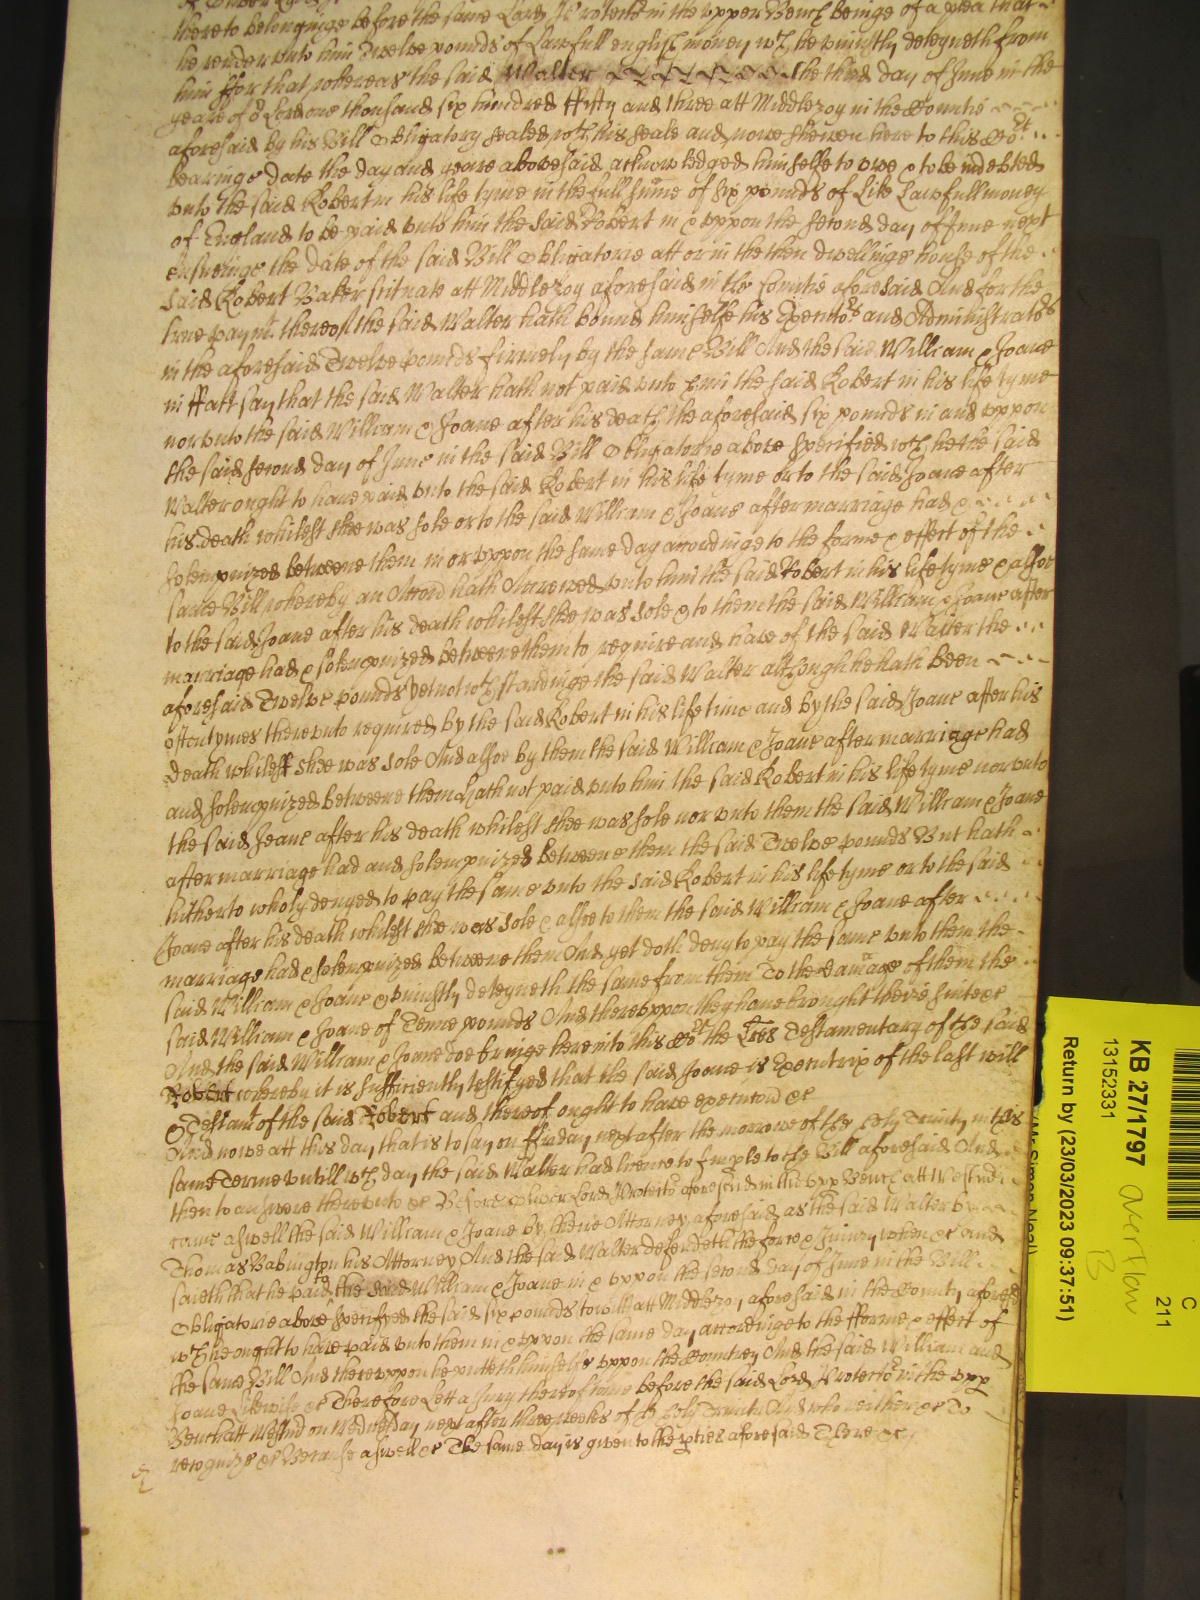 thereto belonginge before the same Lord Protector in the upper Bench beinge of a plea that
he render unto him Twelve pounds of Lawfull english money wch he uniustly deteyneth from
him ffor that whereas the said Walter the third day of June in the
yeare of or Lord one thousand six hundred ffifty and three att Middlezoy in the Countie
aforesaid by his Bill Obligatory sealed wth his seale and nowe shewen here to this Cort
bearinge date the day and yeare abovesaid acknowledged himselfe to owe & to be indebted
unto the said Robert in his life tyme in the full sume of six pounds of Like Lawfull money
of England to be paid unto him the said Robert in & uppon the second day of June next
ensueinge the date of the said Bill Obligatorie att or in the then dwellinge house of the
said Robert Baker scituate att Middlezoy aforesaid in the Countie aforesaid And for the
true paymt thereof the said Walter hath bound himselfe his Executors and Administrators
in the aforesaid Twelve pounds firmely by the same Bill And the said William & Joane
in ffact say that the said Walter hath not paid unto him the said Robert in his life tyme
nor unto the said William & Joane after his death the aforesaid six pounds in and uppon
the said second day of June in the said Bill Obligatorie above specified wch he the said
Walter ought to have paid unto the said Robert in his life tyme or to the said Joane after
his death whilest shee was sole or to the said William & Joane after marriage had &
solempnized betweene them in or uppon the same day accordinge to the forme & effect of the
same Bill whereby an Accon hath Accrewed unto him the said Robert in his life tyme & alsoe
to the said Joane after his death whilest shee was sole & to them the said William & Joane after
marriage had & solempnized betweene them to require and have of the said Walter the
aforesaid Twelve pounds Yet notwthstandinge the said Walter although he hath been
oftentymes thereunto required by the said Robert in his life time and by the said Joane after his
death whilest shee was sole And alsoe by them the said William & Joane after marriage had
and solempnized betweene them hath not paid unto him the said Robert in his life tyme nor unto
the said Joane after his death whilest shee was sole nor unto them the said William & Joane
after marriage had and solempnized betweene them the said Twelve pounds But hath
hitherto wholy denyed to pay the same unto the said Robert in his life tyme or to the said
Joane after his death whilest shee was sole & alsoe to them the said William & Joane after
marriage had & solempnized betweene them And yet doth deny to pay the same unto them the
said William & Joane & uniustly deteyneth the same from them To the damage of them the
said William & Joane of Tenne pounds And thereuppon they have brought theire suite &c
And the said William & Joane doe bringe here into this Cort the Lres Testamentary of the said
Robert whereby it is sufficiently testifyed that the said Joane is Executrix of the last will
& Testamt of the said Robert and thereof ought to have execucon &c
And nowe att this day that is to say on ffriday next after the morrowe of the holy Trinity in this
same Terme untill wch day the said Walter had licence to Imple to the Bill aforesaid And
then to answere thereunto &c Before Oliver Lord Protector aforesaid in the upp Bench att Westmr
came aswell the said William & Joane by their Attorney aforesaid as the said Walter by
Thomas Babington his Attorney And the said Walter defendeth the force & Iniury when &c and
saieth that he paid to the said William & Joane in & uppon the second day of June in the Bill
Obligatorie above specifyed the said six pounds to witt att Middlezoy aforesaid in the County aforesd
wch he ought to have paid unto them in & uppon the same day accordinge to the fforme & effect of
the same Bill And thereuppon he putteth himselfe uppon the Countrey And the said William and
Joane Likewise &c Therefore Lett a Jury thereof come before the said Lord Protector in the upp
Bench att Westmr on Wednesday next after three weekes of the holy Trinity And who neither &c To
recognize &c Because aswell &c The same day is given to the pties aforesaid There &c
KB 27/1797
13152331
Return by (23/03/2023 09:37:51)
C
211
overflow
B